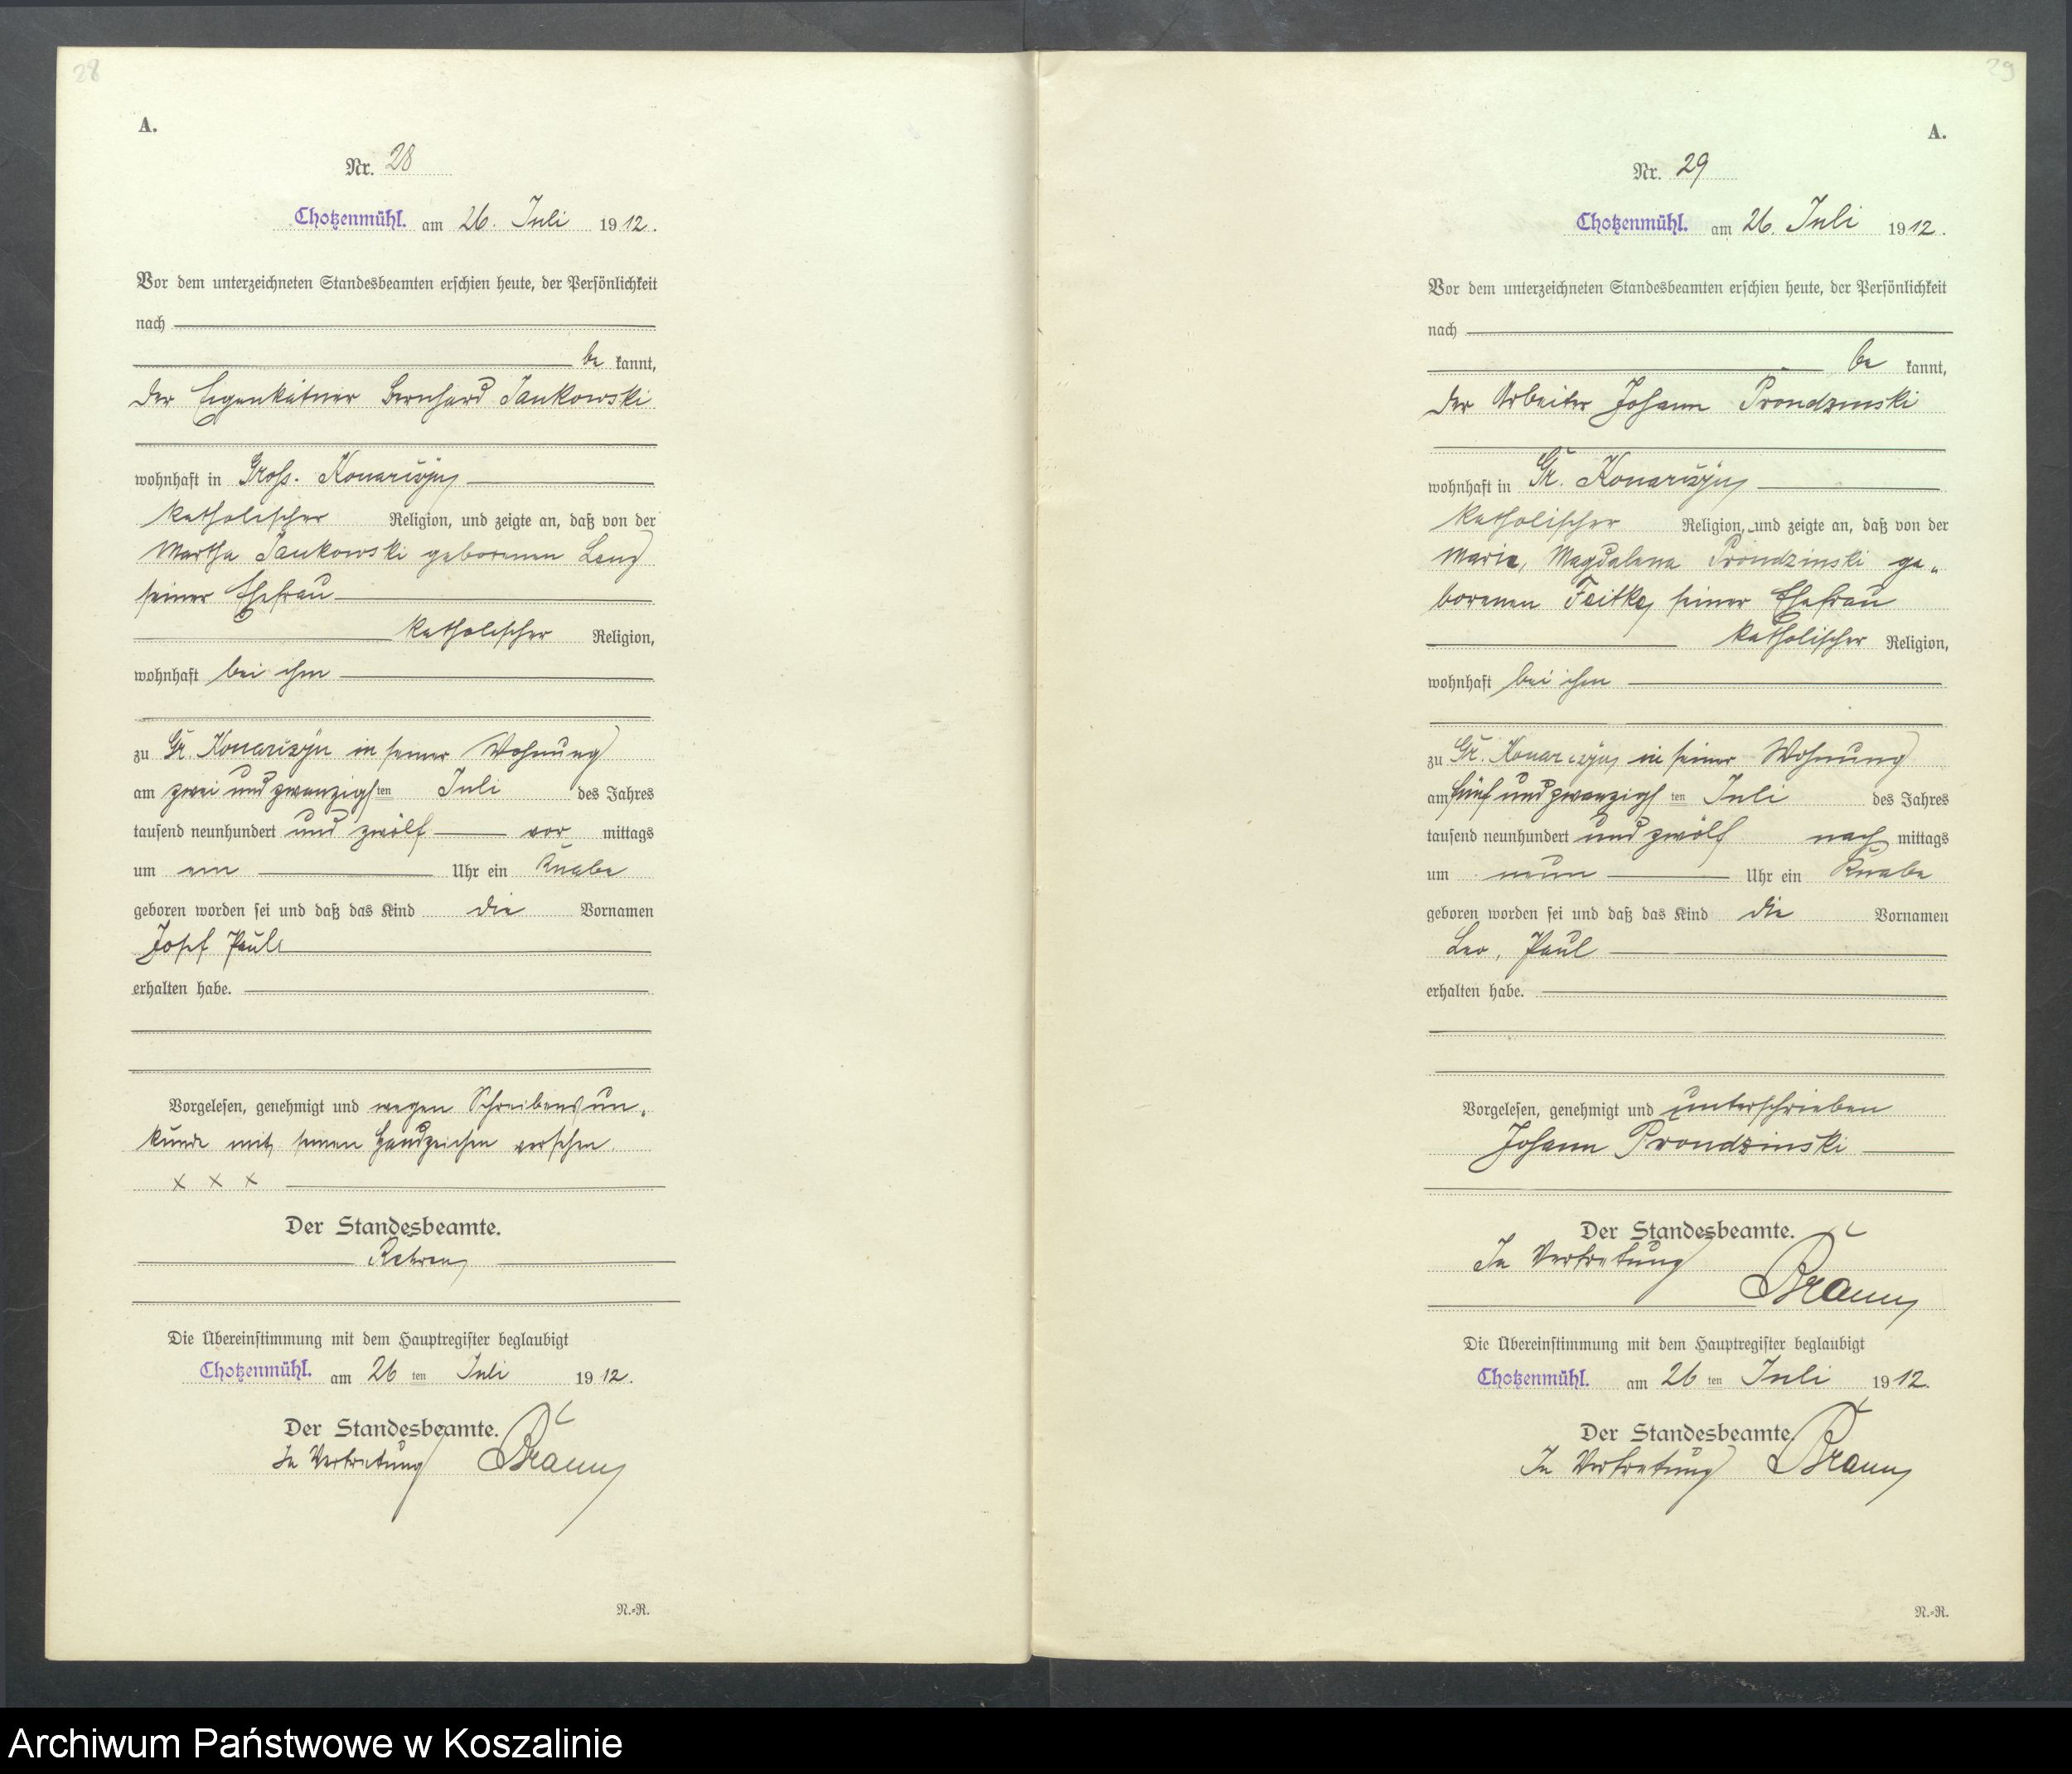 28
A.
Nr. 28
Chotzenmühl. am 26. Juli 1912.
Vor dem unterzeichneten Standesbeamten erschien heute, der Persönlichkeit
nach
be kannt,
der Eigenkätner Bernhard Jankowski
wohnhaft in Gross. Konarczyn
katholischer Religion, und zeigte an, daß von der
Martha Jankowski geborenen
seiner Ehefrau
katholischer Religion,
wohnhaft bei ihm
zu Gr. Konarczyn in seiner Wohnung
am zwei und zwanzigsten Juli des Jahres
tausend neunhundert und zwölf vor mittags
um ein Uhr ein Knabe
geboren worden sei und daß das Kind die Vornamen
Josef Paul
erhalten habe.
Vorgelesen, genehmigt und wegen Schreibensun-
kunde mit seinen Handzeichen versehen.
x x x
Der Standesbeamte.
Die Übereinstimmung mit dem Hauptregister beglaubigt
Chotzenmühl. am 26 ten Juli 1912.
Der Standesbeamte.
In Vertretung Braun
N.-R.
29
A.
Nr. 29
Chotzenmühl. am 26. Juli 1912.
Vor dem unterzeichneten Standesbeamten erschien heute, der Persönlichkeit
nach
be kannt,
der Arbeiter Johann Prondzinski
wohnhaft in Gr. Konarczyn
katholischer Religion, und zeigte an, daß von der
Maria, Magdalena Prondzinski ge-
borenen seiner Ehefrau
katholischer Religion,
wohnhaft bei ihm
zu Gr. Konarczyn in seiner Wohnung
am fünf und zwanzigsten Juli des Jahres
tausend neunhundert und zwölf nach mittags
um neun Uhr ein Knabe
geboren worden sei und daß das Kind die Vornamen
Leo, Paul
erhalten habe.
Vorgelesen, genehmigt und unterschrieben
Johann Prondzinski
Der Standesbeamte.
In Vertretung
Braun
Die Übereinstimmung mit dem Hauptregister beglaubigt
Chotzenmühl. am 26 ten Juli 1912.
Der Standesbeamte
In Vertretung Braun
N.-R.
Archiwum Państwowe w Koszalinie